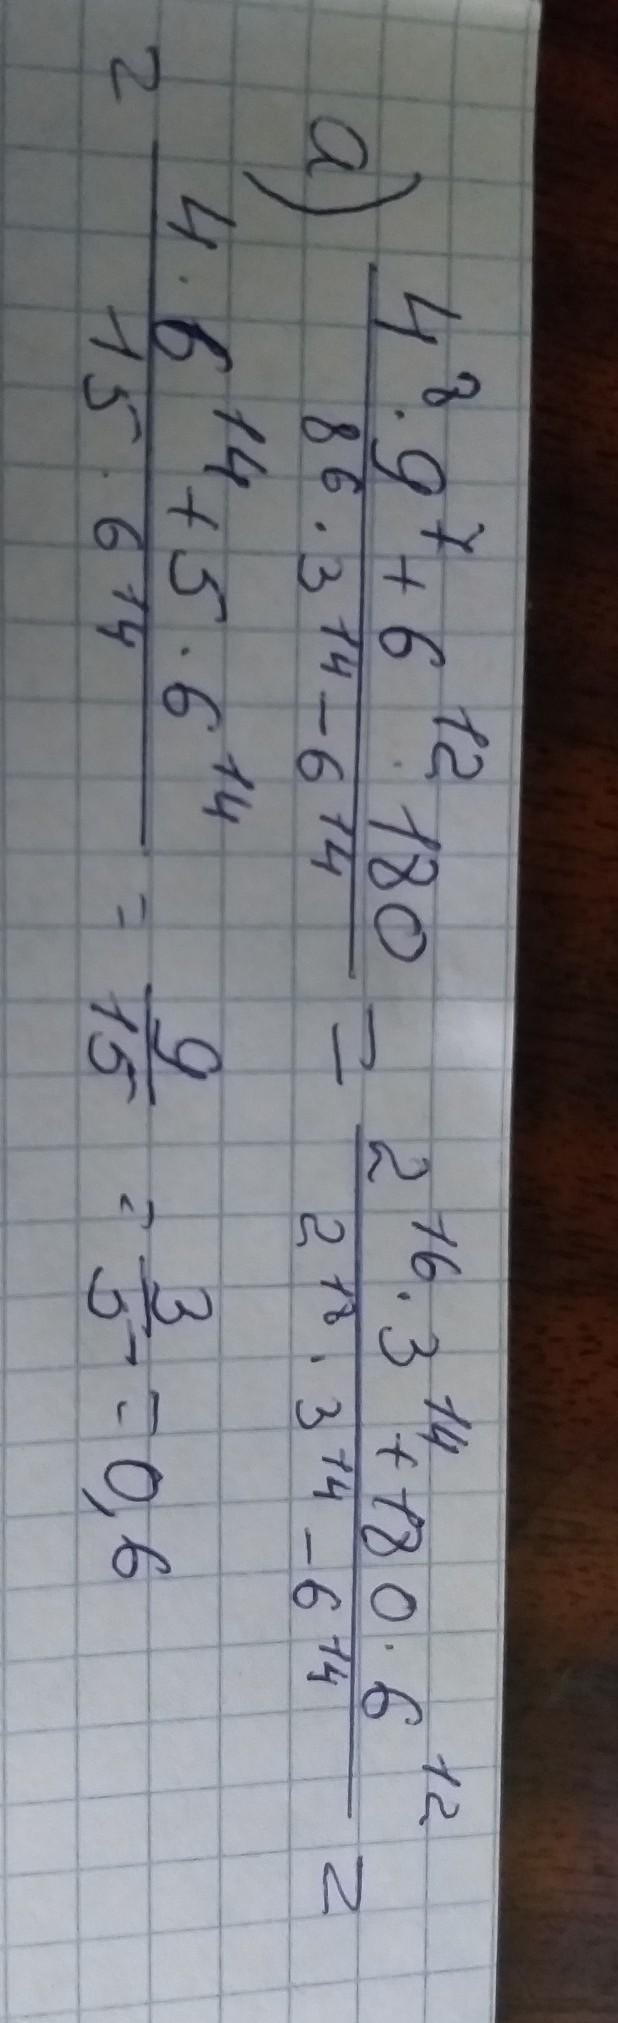 а) (4^8 · 9^7 + 6^12 · 180) / (8^6 · 3^14 - 6^14) = (2^16 · 3^14 + 180 · 6^12) / (2^18 · 3^14 - 6^14) =
= (4 · 6^14 + 5 · 6^14) / (15 · 6^14) = 9/15 = 3/5 = 0,6